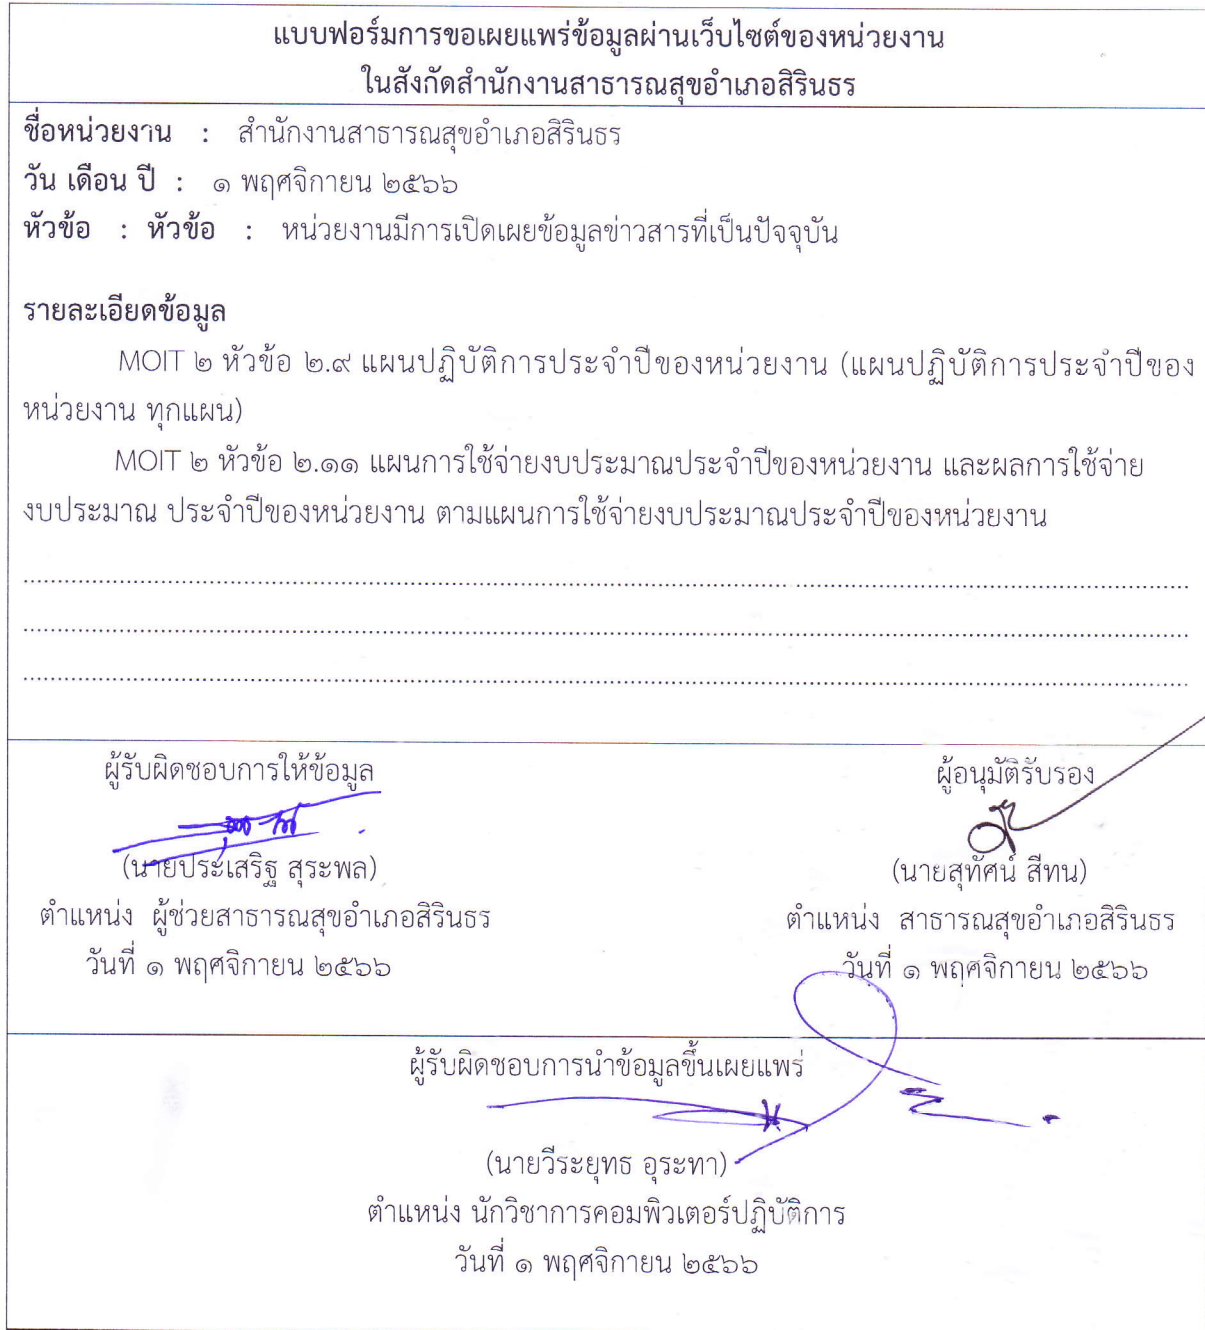 แบบฟอร์มการขอเผยแพร่ข้อมูลผ่านเว็บไซต์ของหน่วยงาน
ในสังกัดสำนักงานสาธารณสุขอำเภอสิรินธร
ชื่อหน่วยงาน : สำนักงานสาธารณสุขอำเภอสิรินธร
วัน เดือน ปี : ๑ พฤศจิกายน ๒๕๖๖
หัวข้อ : หัวข้อ : หน่วยงานมีการเปิดเผยข้อมูลข่าวสารที่เป็นปัจจุบัน
รายละเอียดข้อมูล
MOIT ๒ หัวข้อ ๒.๙ แผนปฏิบัติการประจำปีของหน่วยงาน (แผนปฏิบัติการประจำปีของ
หน่วยงาน ทุกแผน)
MOIT ๒ หัวข้อ ๒.๑๑ แผนการใช้จ่ายงบประมาณประจำปีของหน่วยงาน และผลการใช้จ่าย
งบประมาณ ประจำปีของหน่วยงาน ตามแผนการใช้จ่ายงบประมาณประจำปีของหน่วยงาน
ผู้รับผิดชอบการให้ข้อมูล
(นายประเสริฐ สุระพล)
ตำแหน่ง ผู้ช่วยสาธารณสุขอำเภอสิรินธร
วันที่ ๑ พฤศจิกายน ๒๕๖๖
ผู้อนุมัติรับรอง
(นายสุทัศน์ สีทน)
ตำแหน่ง สาธารณสุขอำเภอสิรินธร
วันที่ ๑ พฤศจิกายน ๒๕๖๖
ผู้รับผิดชอบการนำข้อมูลขึ้นเผยแพร่
(นายวีระยุทธ อุระทา)
ตำแหน่ง นักวิชาการคอมพิวเตอร์ปฏิบัติการ
วันที่ ๑ พฤศจิกายน ๒๕๖๖